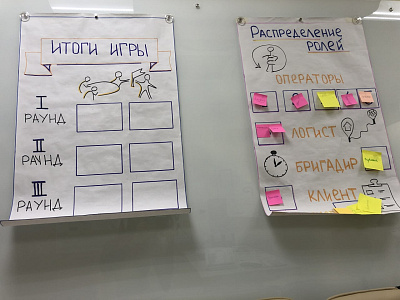 ИТОГИ ИГРЫ
I
РАУНД
II
РАУНД
III
РАУНД
Распределение
ролей
ОПЕРАТОРЫ
ЛОГИСТ
БРИГАДИР
КЛИЕНТ